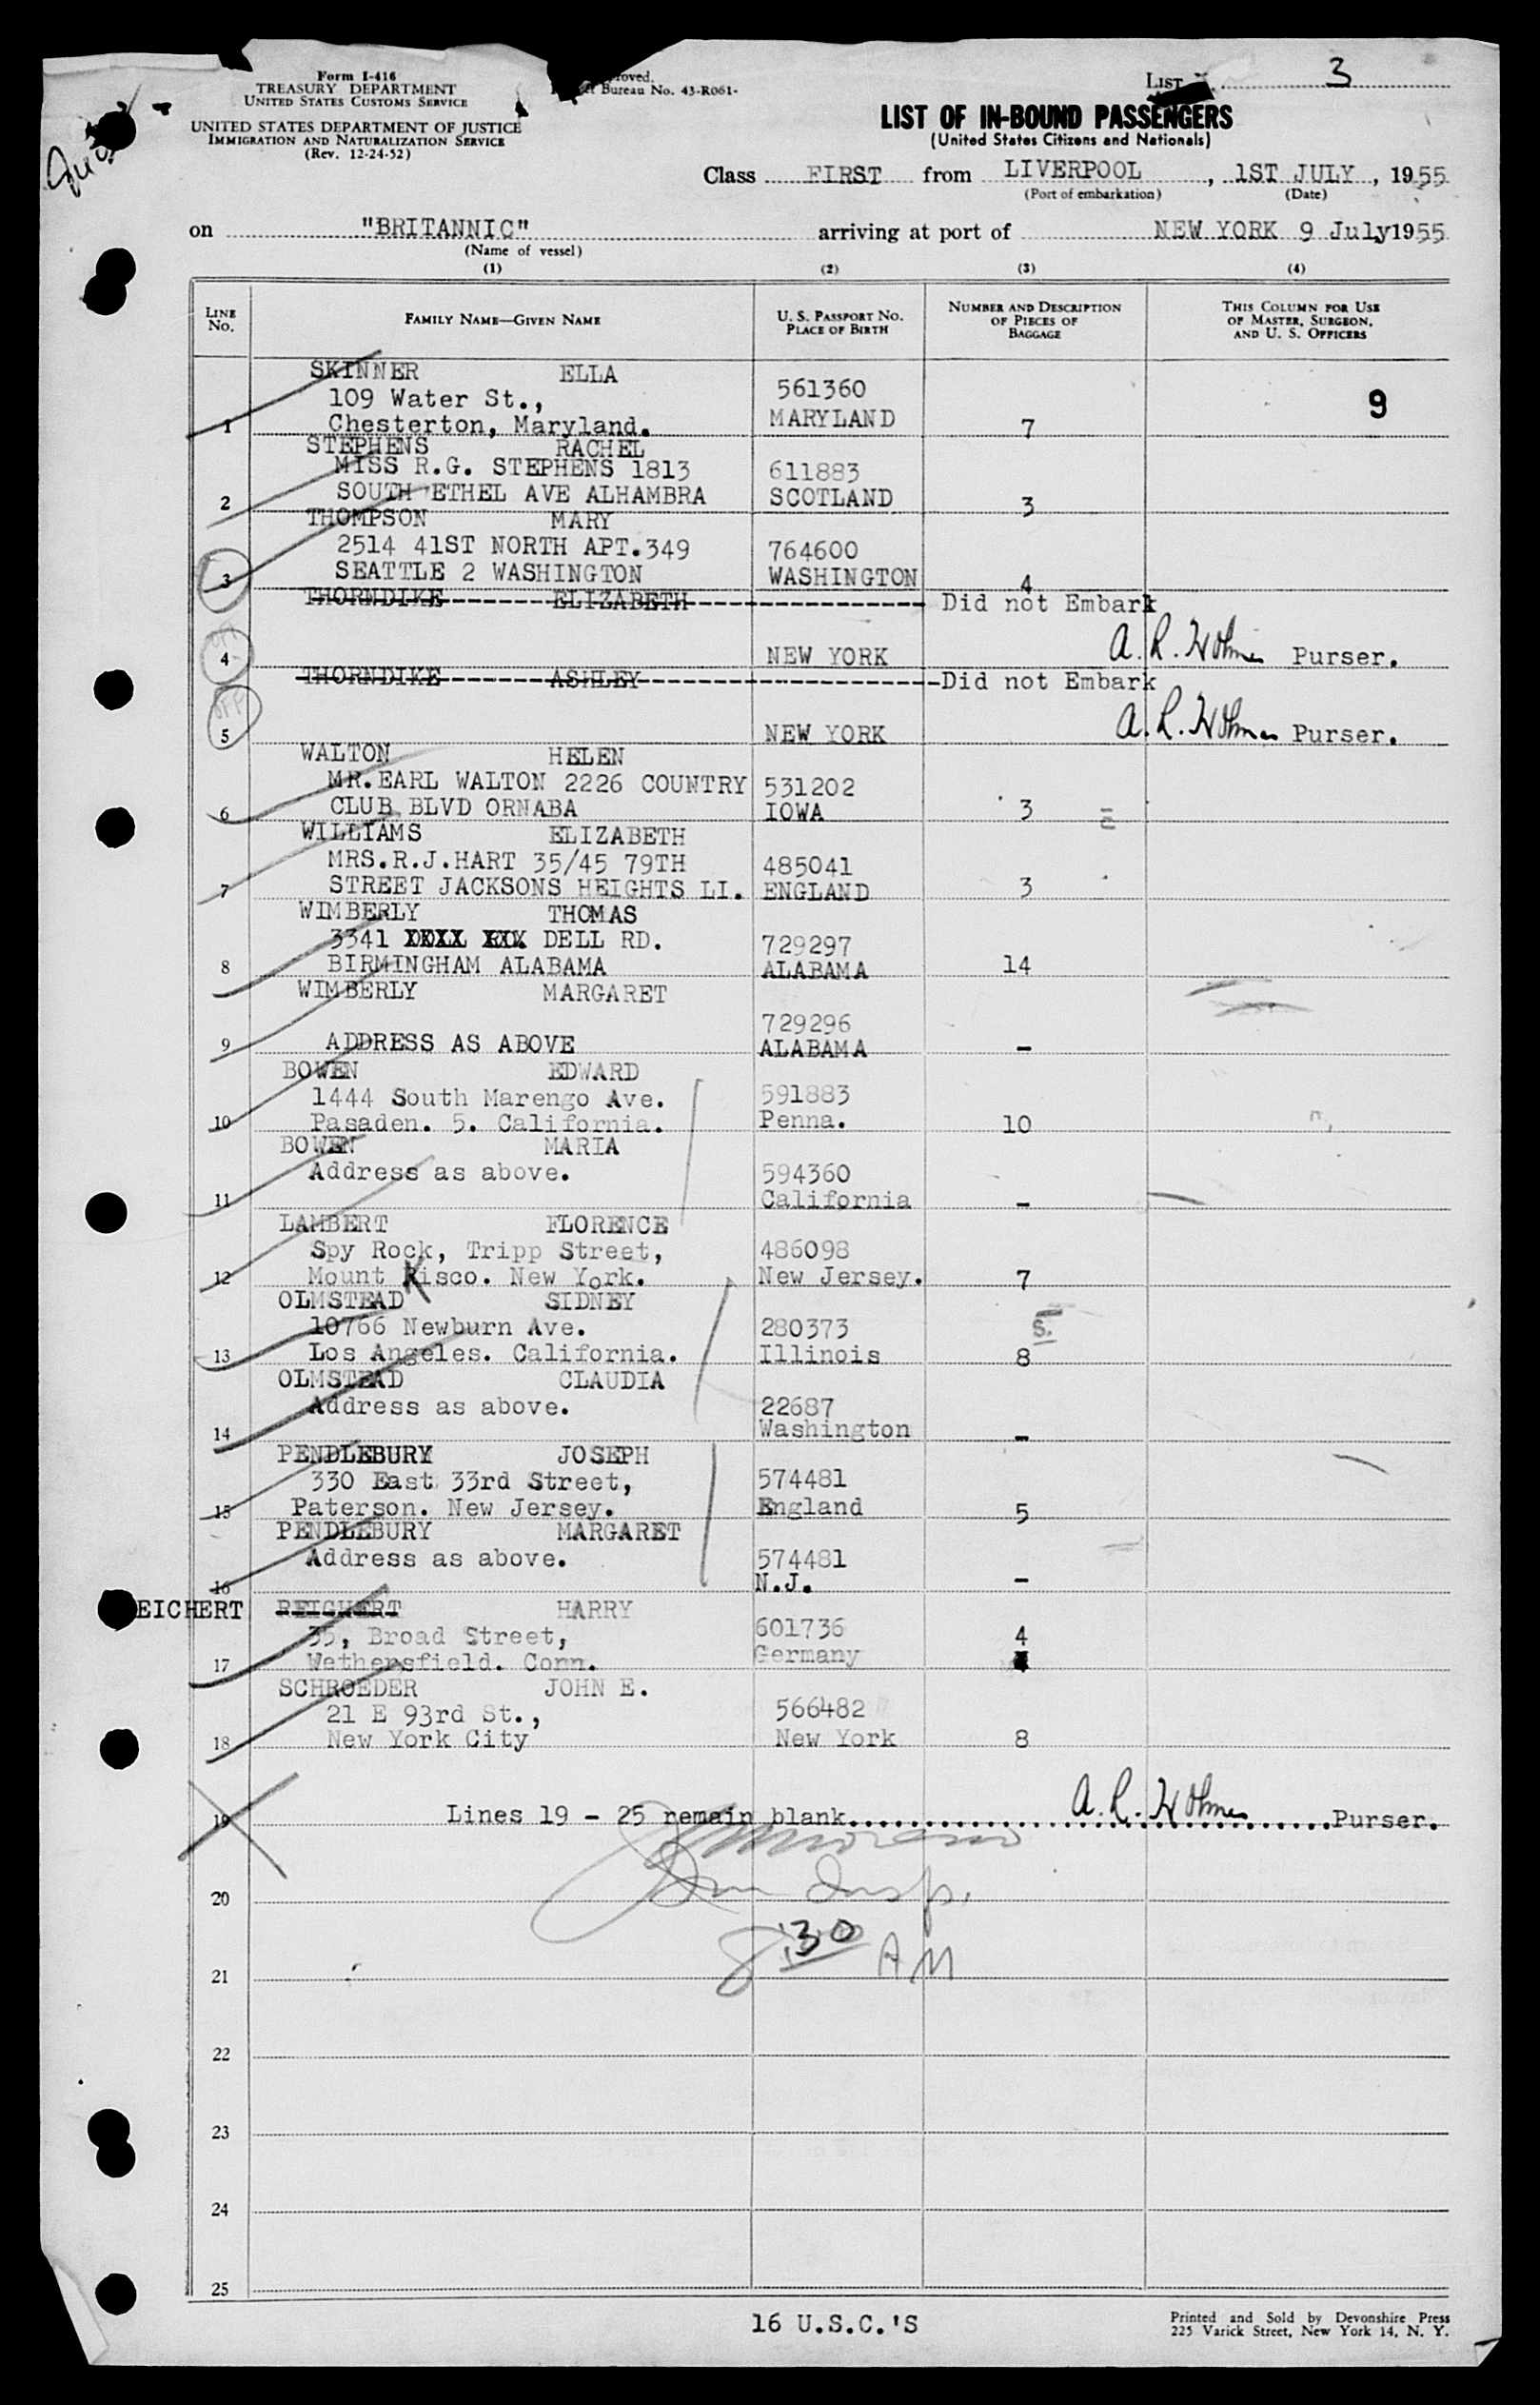 Form I-416
TREASURY DEPARTMENT
UNITED STATES CUSTOMS SERVICE
UNITED STATES DEPARTMENT OF JUSTICE
IMMIGRATION AND NATURALIZATION SERVICE
(Rev. 12-24-52)
Bureau No. 43-R061-
LIST 3
LIST OF IN-BOUND PASSENGERS
(United States Citizens and Nationals)
Class FIRST from LIVERPOOL, 1ST JULY, 1955
(Port of embarkation) (Date)
on "BRITANNIC" arriving at port of NEW YORK 9 July 1955
(Name of vessel)
(1) (2) (3) (4)
LINE No. FAMILY NAME—GIVEN NAME U. S. PASSPORT NO. PLACE OF BIRTH NUMBER AND DESCRIPTION OF PIECES OF BAGGAGE THIS COLUMN FOR USE OF MASTER, SURGEON, AND U. S. OFFICERS
SKINNER ELLA
109 Water St., 561360 9
1 Chesterton, Maryland. MARYLAND 7
STEPHENS RACHEL
MISS R.G. STEPHENS 1813 611883
2 SOUTH ETHEL AVE ALHAMBRA SCOTLAND 3
THOMPSON MARY
2514 41ST NORTH APT.349 764600
3 SEATTLE 2 WASHINGTON WASHINGTON 4
THORNDIKE ELIZABETH Did not Embark
4 NEW YORK A. R. Holmes Purser.
THORNDIKE ASHLEY Did not Embark
5 NEW YORK A. R. Holmes Purser.
WALTON HELEN
MR.EARL WALTON 2226 COUNTRY 531202
6 CLUB BLVD ORNABA IOWA 3
WILLIAMS ELIZABETH
MRS.R.J.HART 35/45 79TH 485041
7 STREET JACKSONS HEIGHTS LI. ENGLAND 3
WIMBERLY THOMAS
3341 DELL RD. 729297
8 BIRMINGHAM ALABAMA ALABAMA 14
WIMBERLY MARGARET
729296
9 ADDRESS AS ABOVE ALABAMA -
BOWEN EDWARD
1444 South Marengo Ave. 591883
10 Pasaden. 5. California. Penna. 10
BOWEN MARIA
Address as above. 594360
11 California -
LAMBERT FLORENCE
Spy Rock, Tripp Street, 486098
12 Mount Kisco. New York. New Jersey. 7
OLMSTEAD SIDNEY
10766 Newburn Ave. 280373
13 Los Angeles. California. Illinois 8
OLMSTEAD CLAUDIA
Address as above. 22687
14 Washington -
PENDLEBURY JOSEPH
330 East 33rd Street, 574481
15 Paterson. New Jersey. England 5
PENDLEBURY MARGARET
Address as above. 574481
16 N.J. -
EICHERT REICHERT HARRY
35, Broad Street, 601736 4
17 Wethersfield. Conn. Germany
SCHROEDER JOHN E.
21 E 93rd St., 566482
18 New York City New York 8
19 Lines 19 - 25 remain blank A. R. Holmes Purser.
20 Insp.
21 8:30 AM
22
23
24
25
16 U.S.C.'S
Printed and Sold by Devonshire Press
225 Varick Street, New York 14, N. Y.